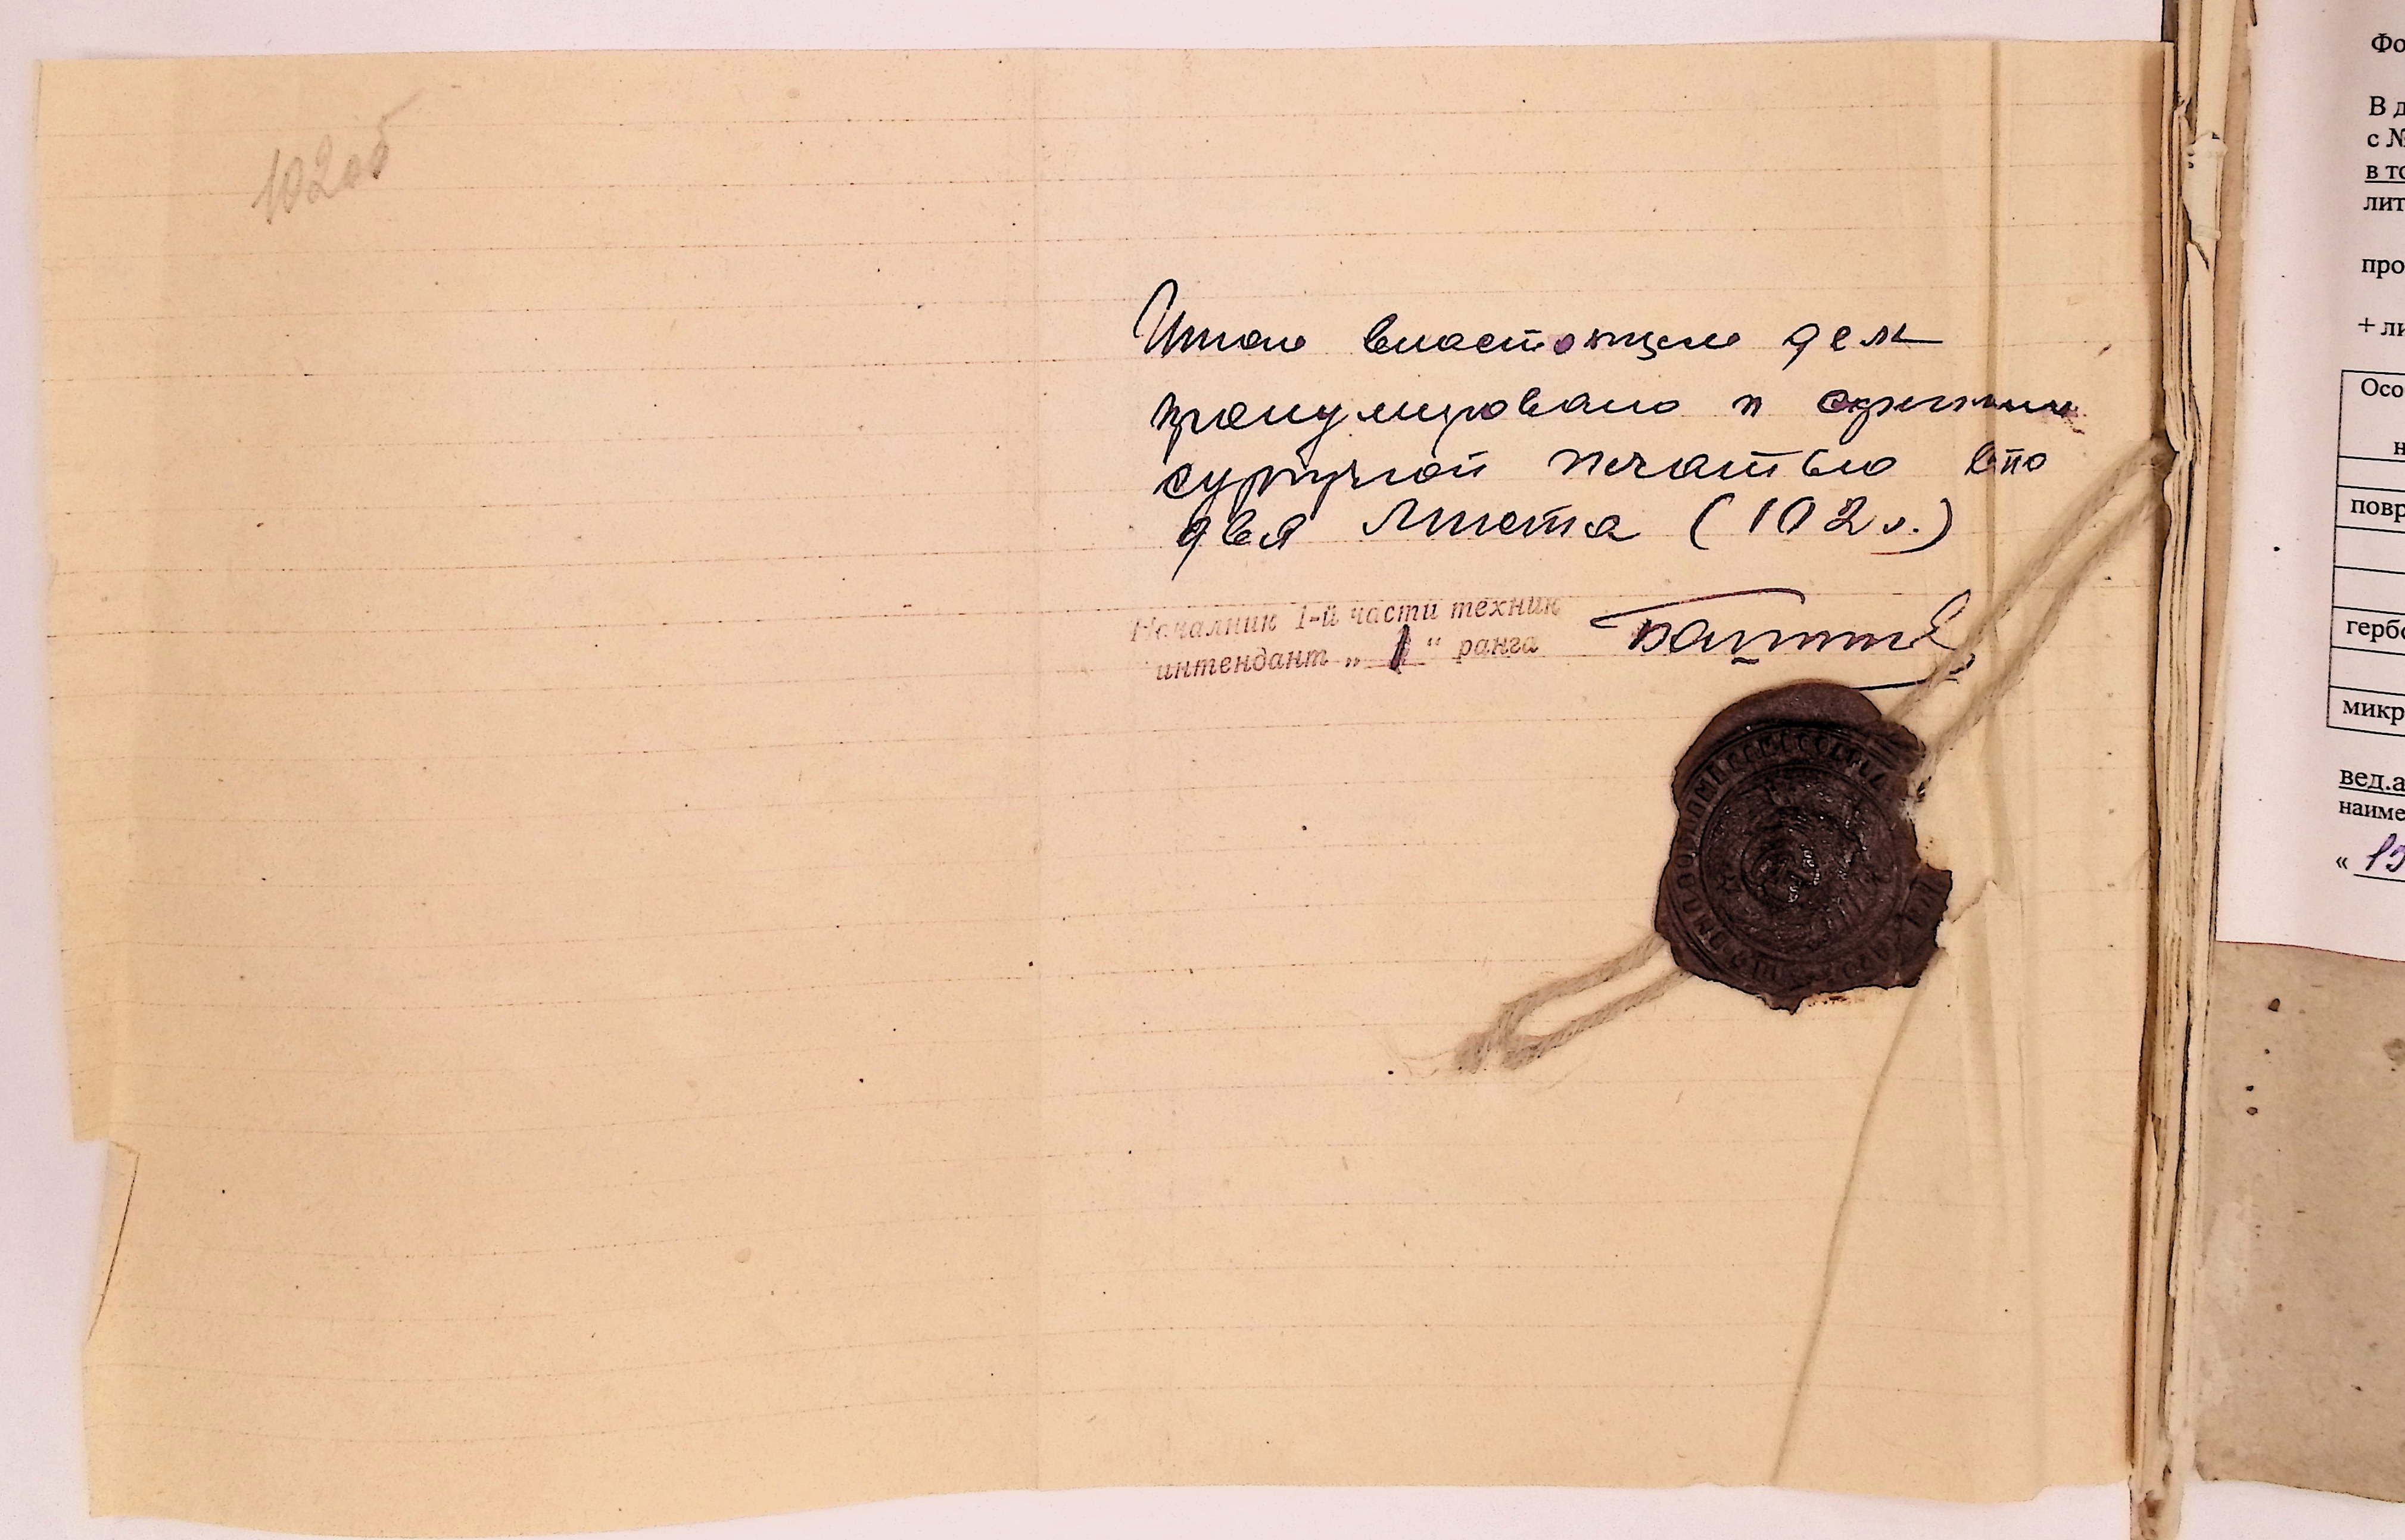 102 об
Итого в настоящем деле
пронумеровано и скреплен
сургучной печатью сто
два листа (102 л.)
Началник 1-й части техник
интендант „ 1 “ ранга
Фо
В д
с №
в то
лит
про
+ ли
Осо
н
повр
герб
микр
вед.а
наиме
«